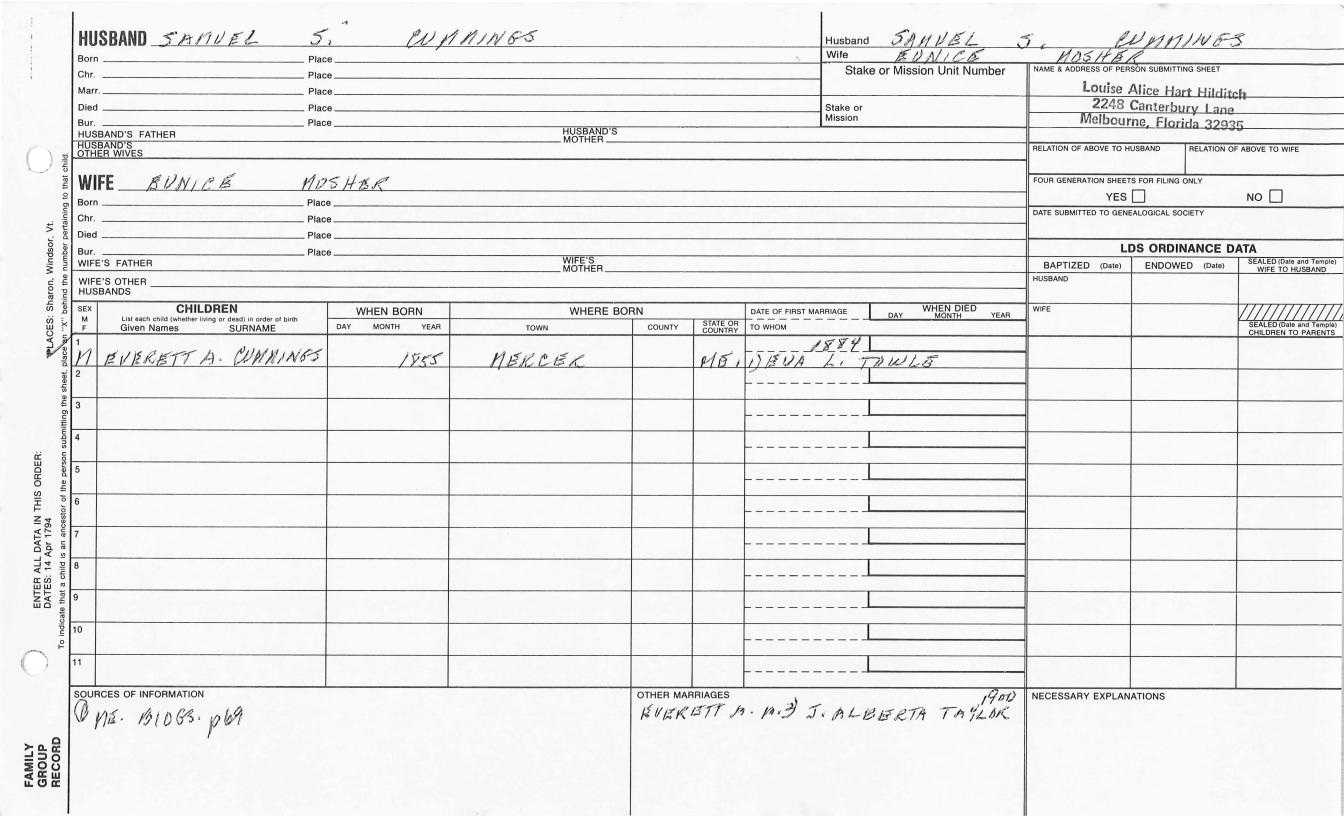 HUSBAND SAMUEL S. CUMMINGS
Born Place
Chr. Place
Marr. Place
Died Place
Bur. Place
HUSBAND'S FATHER HUSBAND'S MOTHER
HUSBAND'S OTHER WIVES
Husband SAMUEL S. CUMMINGS
Wife EUNICE MOSHER
Stake or Mission Unit Number
Stake or Mission
NAME & ADDRESS OF PERSON SUBMITTING SHEET
Louise Alice Hart Hilditch
2248 Canterbury Lane
Melbourne, Florida 32935
RELATION OF ABOVE TO HUSBAND RELATION OF ABOVE TO WIFE
FOUR GENERATION SHEETS FOR FILING ONLY
YES NO
DATE SUBMITTED TO GENEALOGICAL SOCIETY
WIFE EUNICE MOSHER
Born Place
Chr. Place
Died Place
Bur. Place
WIFE'S FATHER WIFE'S MOTHER
WIFE'S OTHER HUSBANDS
LDS ORDINANCE DATA
BAPTIZED (Date) ENDOWED (Date) SEALED (Date and Temple) WIFE TO HUSBAND
HUSBAND
WIFE
SEALED (Date and Temple) CHILDREN TO PARENTS
SEX M F
CHILDREN
List each child (whether living or dead) in order of birth
Given Names SURNAME
WHEN BORN
DAY MONTH YEAR
WHERE BORN
TOWN COUNTY STATE OR COUNTRY
DATE OF FIRST MARRIAGE
TO WHOM
WHEN DIED
DAY MONTH YEAR
1 1884
M EVERETT A. CUMMINGS 1855 MERCER ME. DEVA L. TOWLE
2
3
4
5
6
7
8
9
10
11
SOURCES OF INFORMATION
① ME. BIOGS. p69
OTHER MARRIAGES
1900
EVERETT A. M.3) J. ALBERTA TAYLOR
NECESSARY EXPLANATIONS
FAMILY GROUP RECORD
ENTER ALL DATA IN THIS ORDER:
DATES: 14 Apr 1794
PLACES: Sharon, Windsor, Vt.
To indicate that a child is an ancestor of the person submitting the sheet, place an "X" behind the number pertaining to that child.